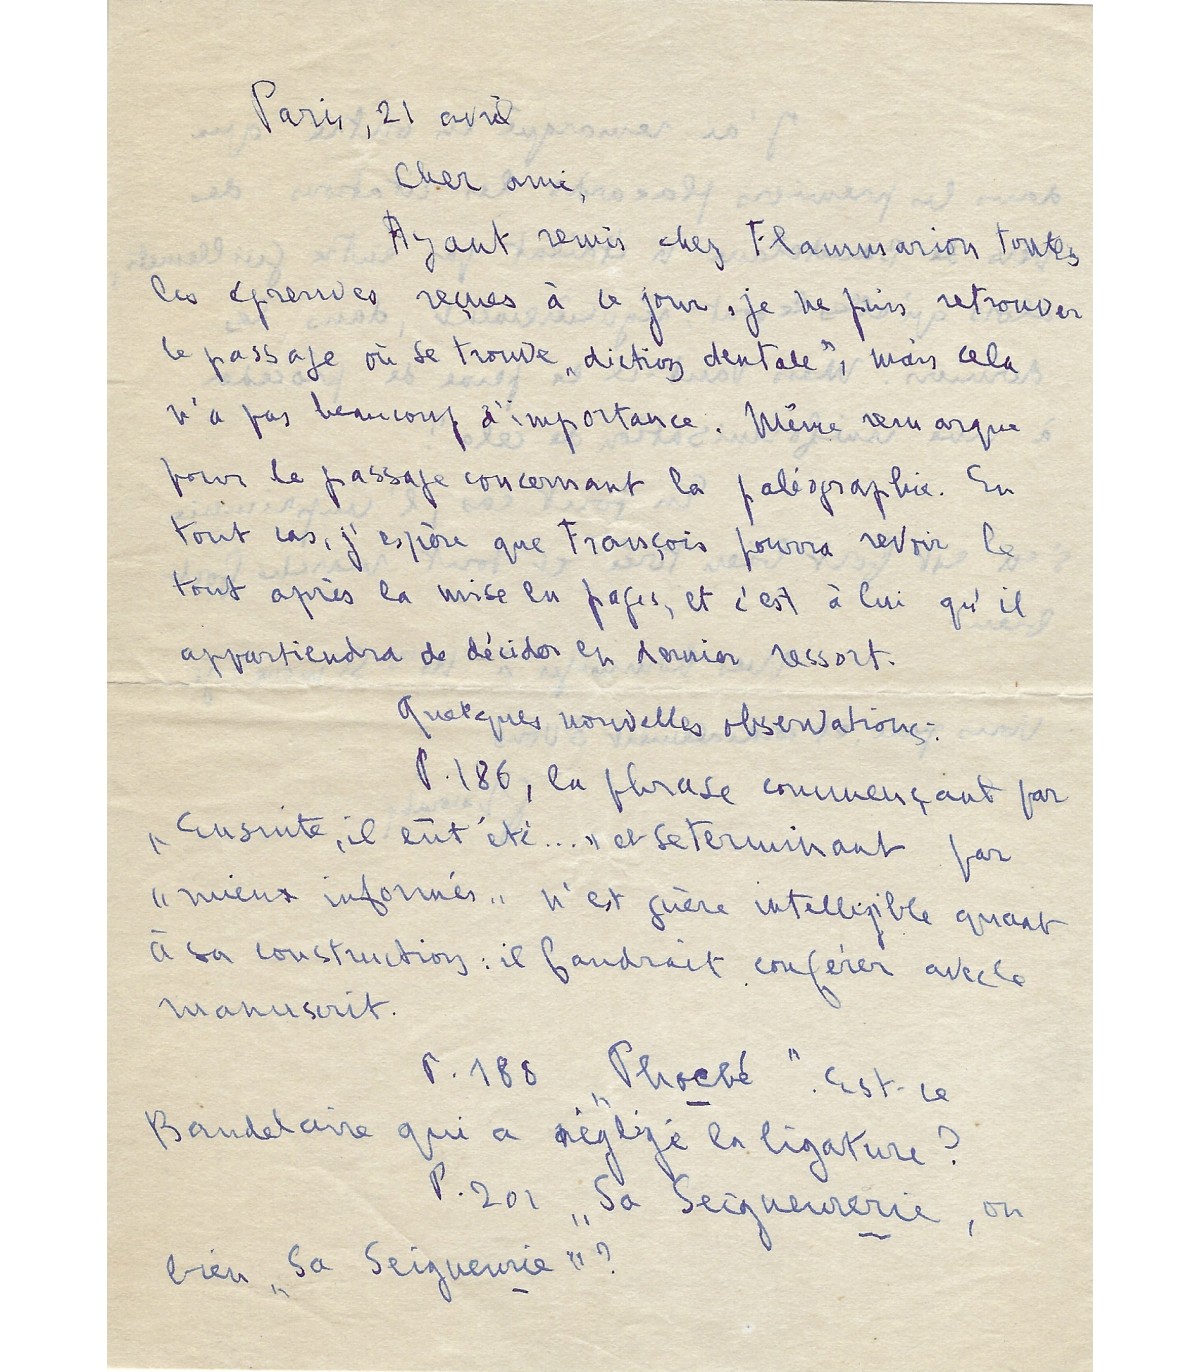 Paris, 21 avril
Cher ami,
Ayant remis chez Flammarion toutes
les épreuves reçues à ce jour, je ne puis retrouver
le passage où se trouve „diction dentale”, mais cela
n'a pas beaucoup d'importance. Même remarque
pour le passage concernant la paléographie. En
tout cas, j'espère que François pourra revoir le
tout après la mise en pages, et c'est à lui qu'il
appartiendra de décider en dernier ressort.
Quelques nouvelles observations:
P. 186, la phrase commençant par
„Ensuite, il eût été..." et se terminant par
"mieux informés" n'est guère intelligible quant
à sa construction: il faudrait conférer avec le
manuscrit.
P. 188 „Phoebé". Est-ce
Baudelaire qui a négligé la ligature?
P. 201 „Sa Seigneurerie, ou
bien „Sa Seigneurie"?